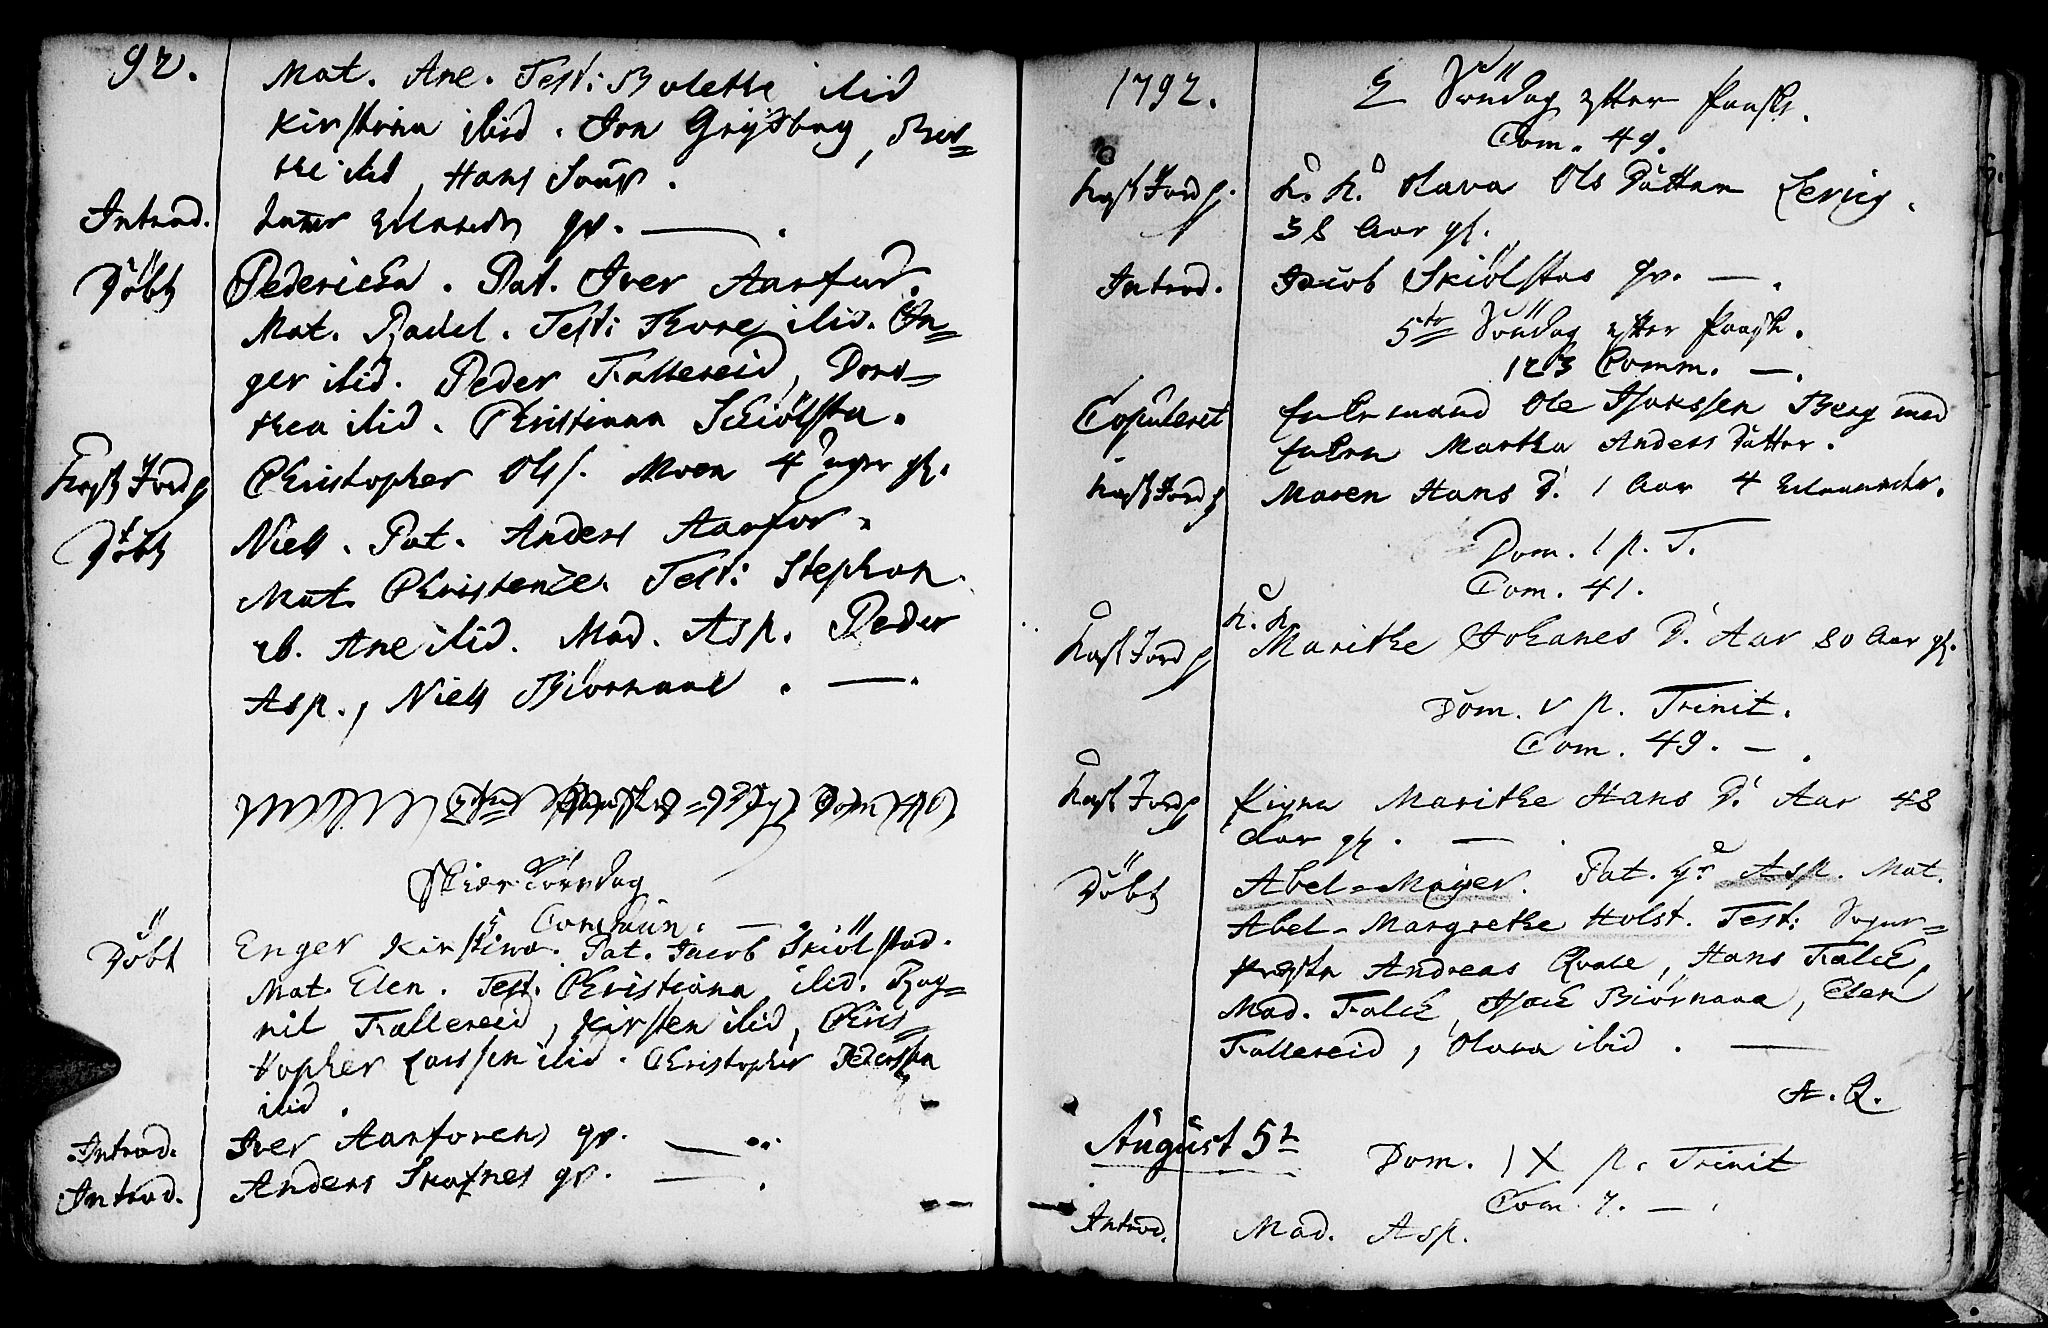 92.
Mat. Ane. Test: Bolethe ibid
Kirstina ibid. Jon Grydsbøg,
ibid, Hans
Introd. gv. —.
Döbt Pedericha. Pat. Iver Aarfor.
Mat. Radel. Test: Thore ibid. In=
ger ibid. Peder Fallereid, Doro=
thea ibid. Christiana Schiölsta.
Kast Jord p Christopher Ols s. Moen 4 uger gl.
Döbt Niels. Pat. Anders Aarfor.
Mat. Christense. Test: Stephan
ib. Ane ibid. Mad. Asp. Peder
Asp., Niels Biörnaae. —.
Skiær Torsdag
Commun. —
Döbt Enger Kirstina. Pat. Jacob Skiölstad.
Mat. Elen. Test. Christiana ibid. Rag=
nil Fallereid, Kirsten ibid, Chris=
topher Larssen ibid. Christopher Pederssen
ibid.
Introd. Iver Aarforens gv. —
Introd. Anders Skafnes gv. —.
1792.
2 Söndag efter Paaske.
Com. 49.
Kast Jord p. K. K. Olava Ols Datter Lervig.
38 Aar gl.
Introd. Jacob Skiölstas gv. —.
5te Söndag efter Paaske.
123 Comm. —.
Copuleret Enkemand Ole Isakssen Berg med
Enken Martha Anders Datter.
Kast Jord p Maren Hans D. 1 Aar 4 Maaneder.
Dom. 1 p. T.
Com. 41.
Kast Jord p K. K. Marithe Johanes D. Aar 80 Aar gl.
Dom. V p. Trinit.
Com. 49. —.
Kast Jord p Pigen Marithe Hans D. Aar 48
Aar gl. —.
Döbt Abel-Mayer. Pat. Hr. Asp. Mat.
Abel-Margrethe Holst. Test: Sogne=
præsten Andreas Qvale, Hans Falck,
Mad. Falck, Isack Biörnaaa, Elen
Fallereid, Olava ibid. —
A. Q.
August 5t
Dom. IX p. Trinit
Com. 7. —.
Introd. Mad. Asp.